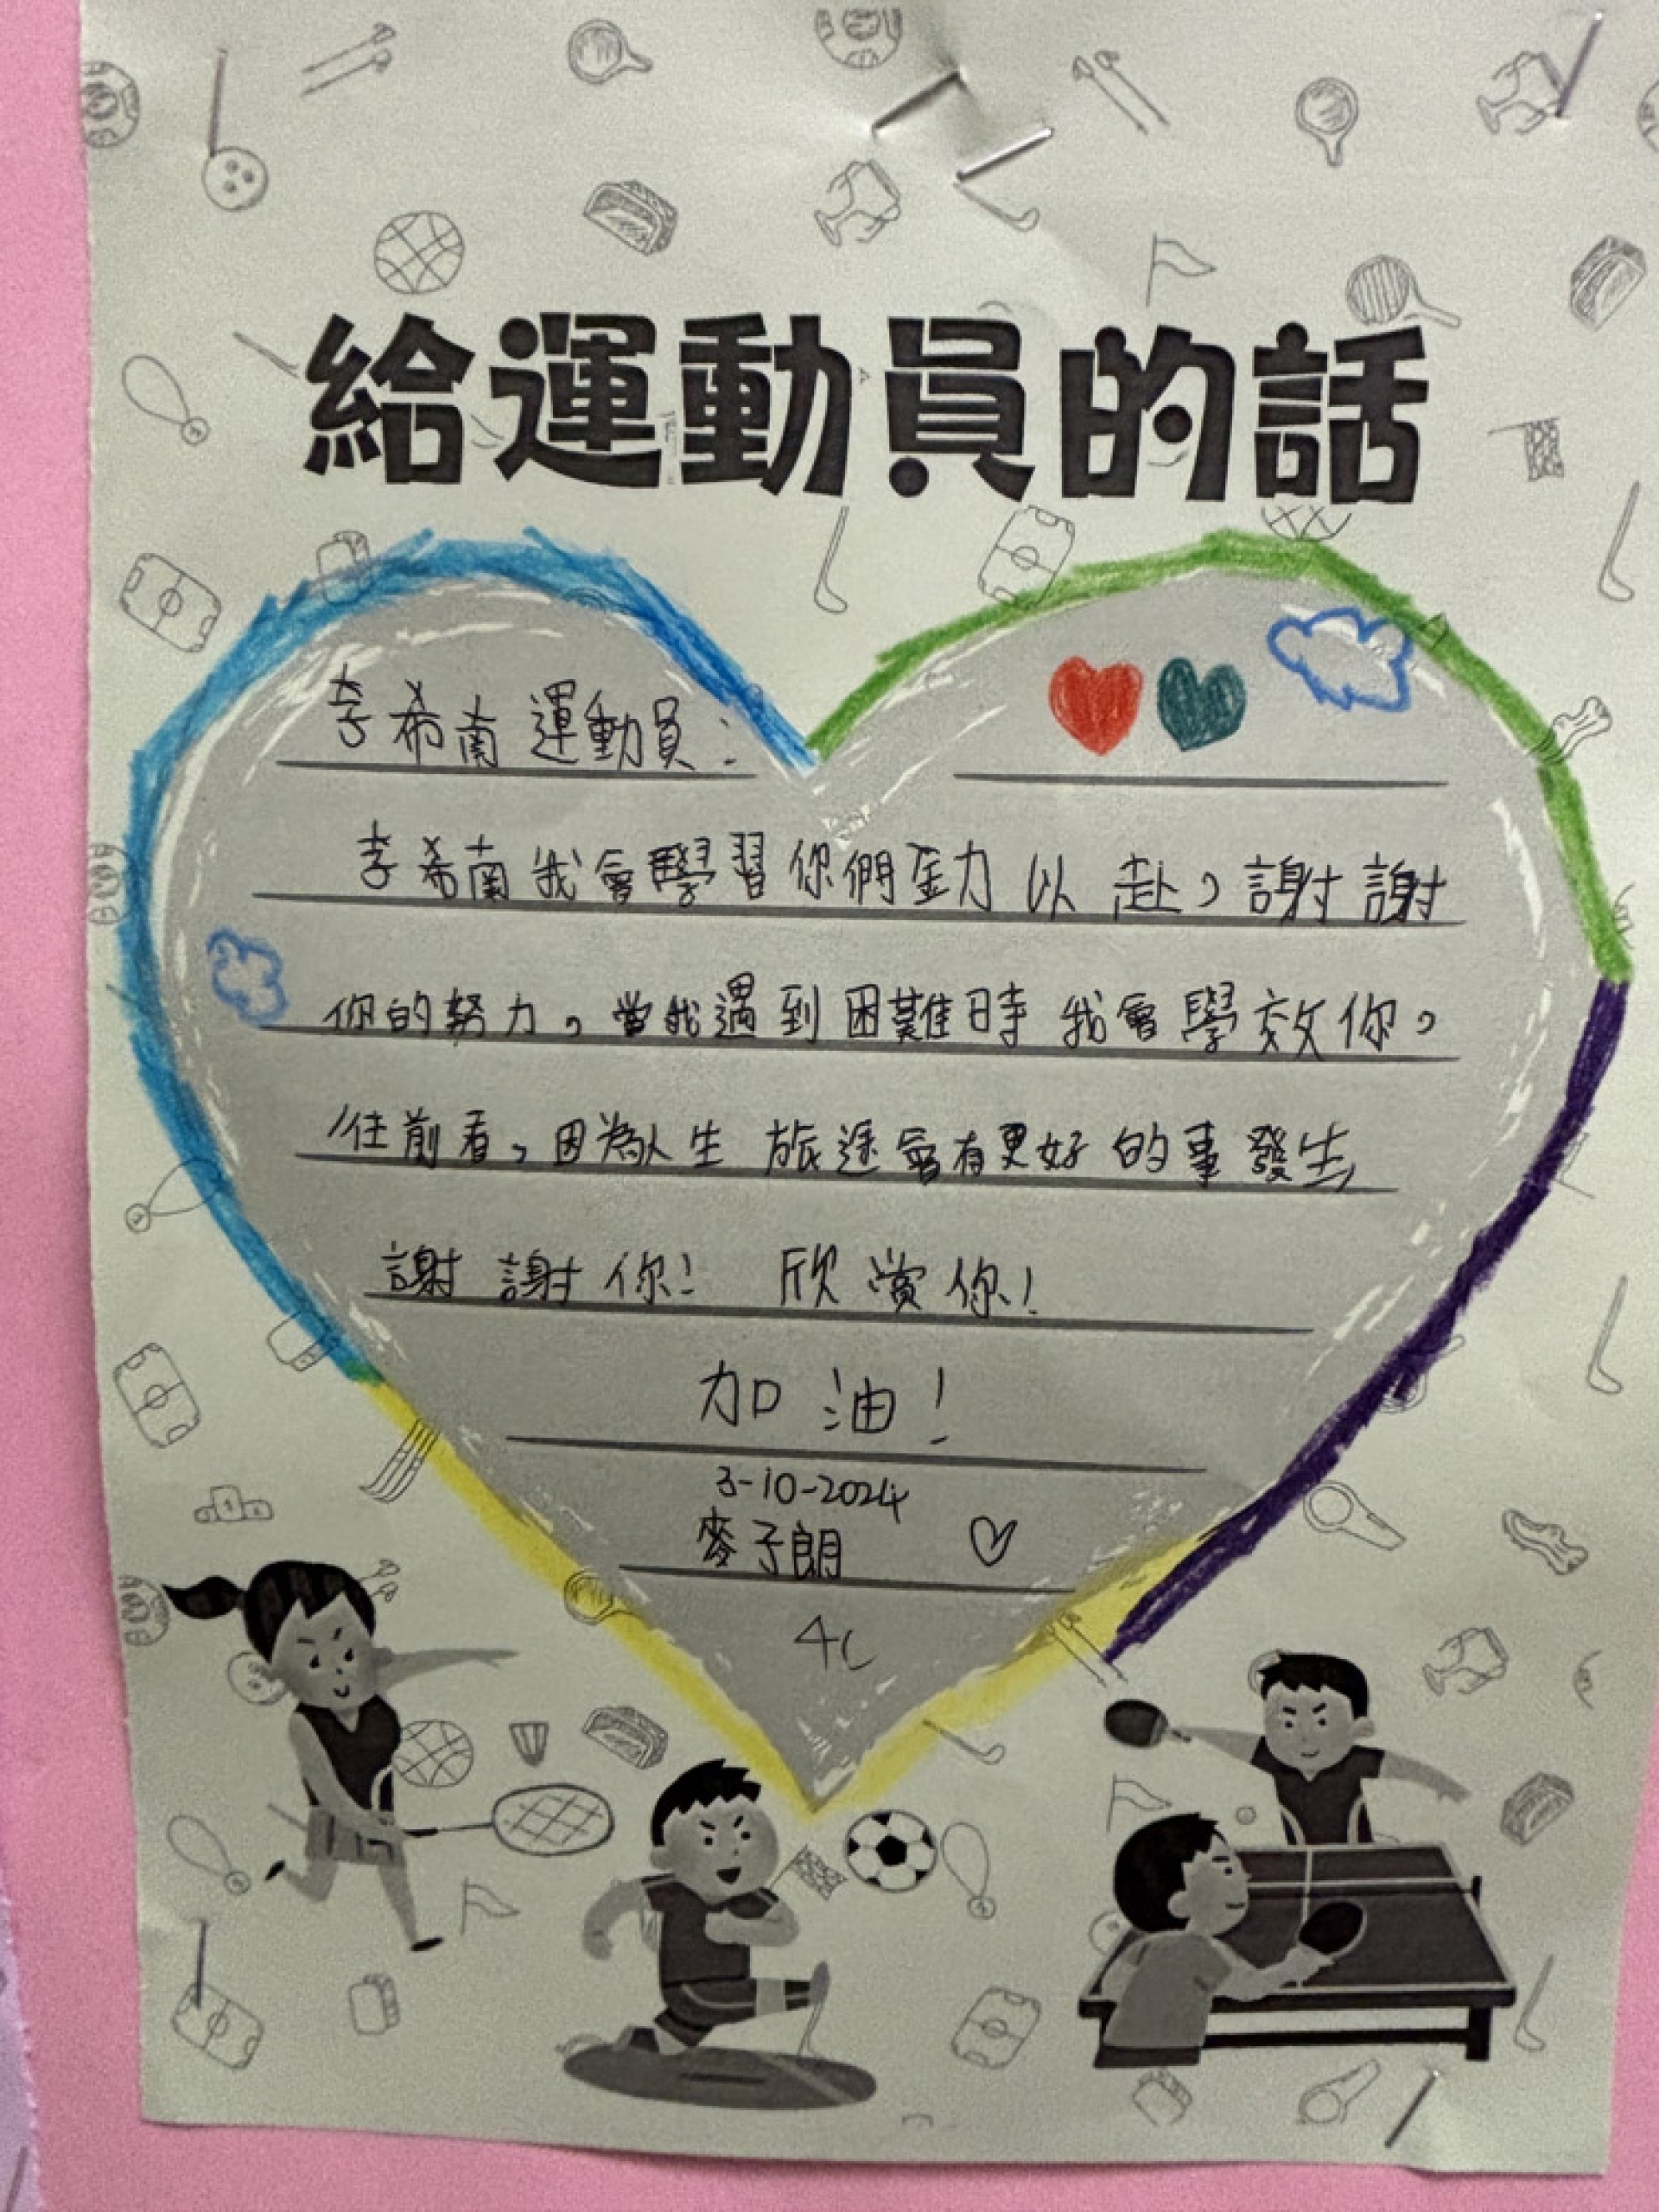 給運動員的話
李希南運動員：
李希南我會學習你們全力以赴，謝謝
你的努力，當我遇到困難時我會學效你，
往前看，因為人生旅途會有更好的事發生，
謝謝你！欣賞你！
加油！
3-10-2024
麥子朗
4C